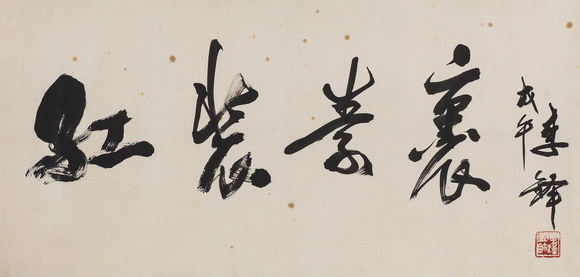 红装素裹
戊午
李铎